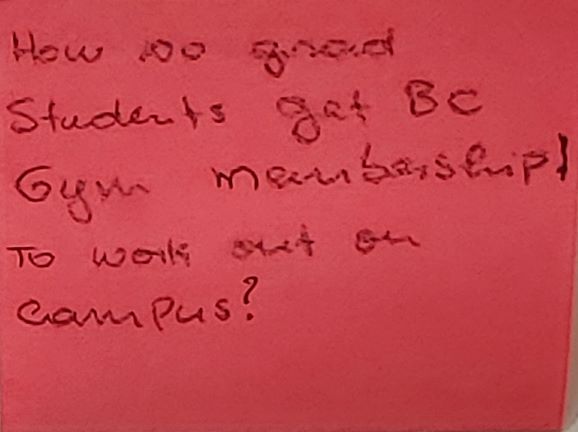 How do grad
Students get BC
Gym membership/
To work out on
campus?